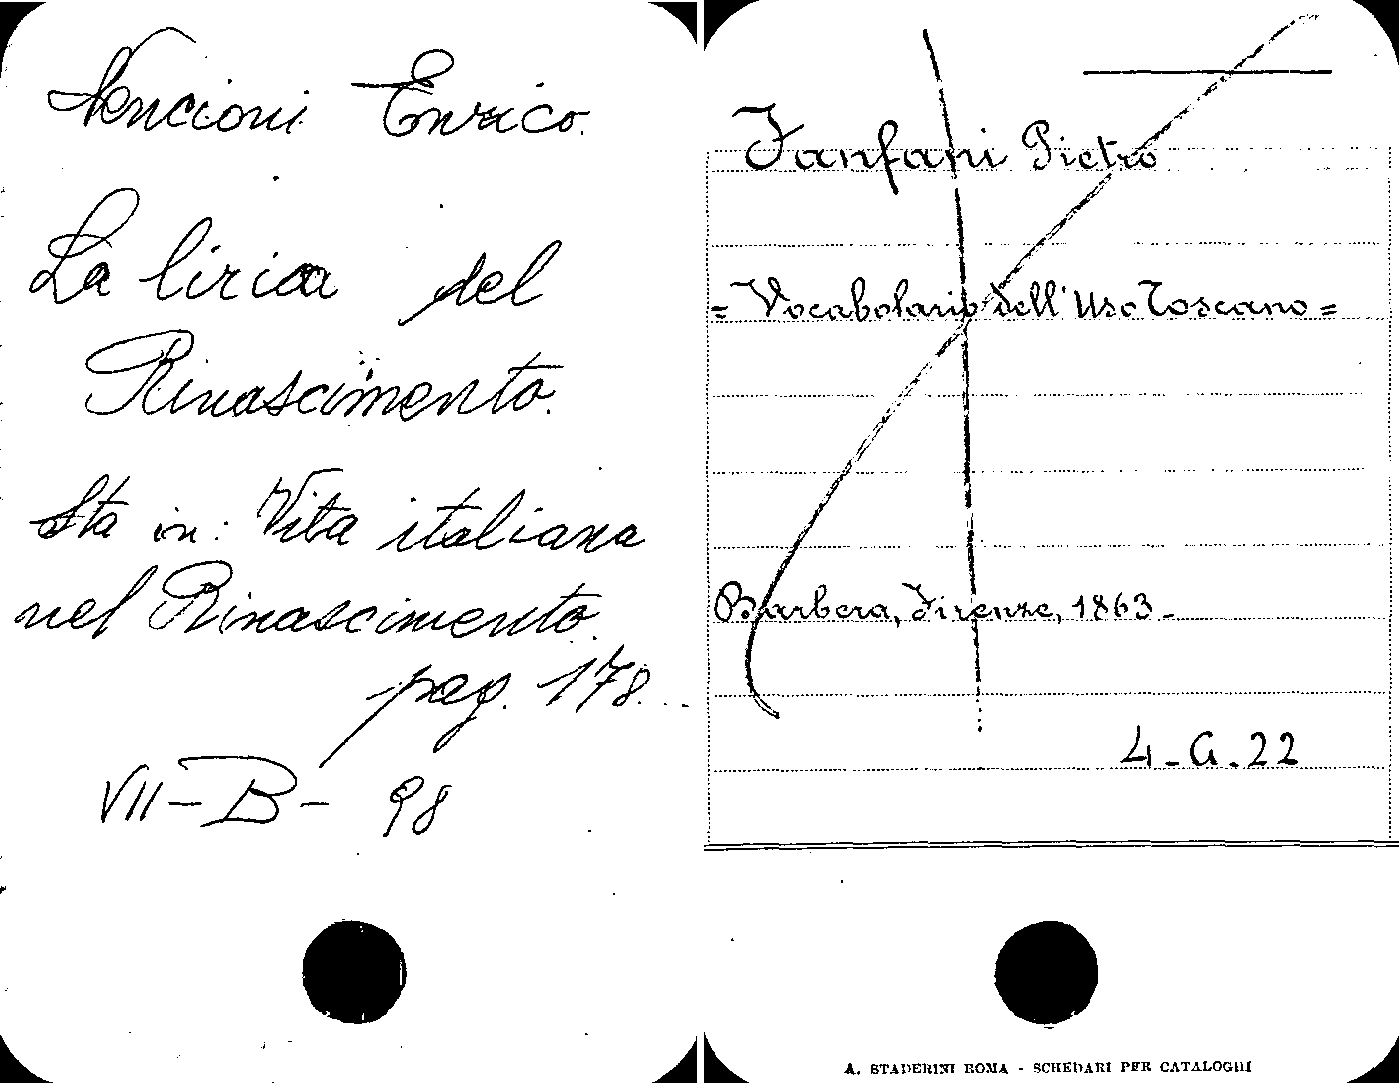 Nencioni Enrico.
La lirica del
Rinascimento.
Sta in: Vita italiana
nel Rinascimento.
pag. 178.
VII-B- 98
Fanfani Pietro
= Vocabolario dell'Uso Toscano =
Barbera, Firenze, 1863.
4-G.22
A. STADERINI ROMA - SCHEDARI PER CATALOGHI